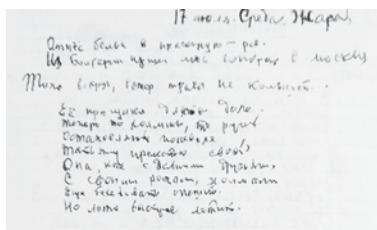 17 июля. Среда. Жара.
Отнёс бельё в прачечную – раз.
Из Болгарии в Москву
Тихо вокруг, ветер не колышет...
Её прогулки длятся доле.
Теперь то холмик, то ручей
Остановляют поневоле
Татьяну прелестью своей.
Она, как с давними друзьями,
С своими рощами, холмами
Ещё беседовать спешит.
Но лето быстрое летит.